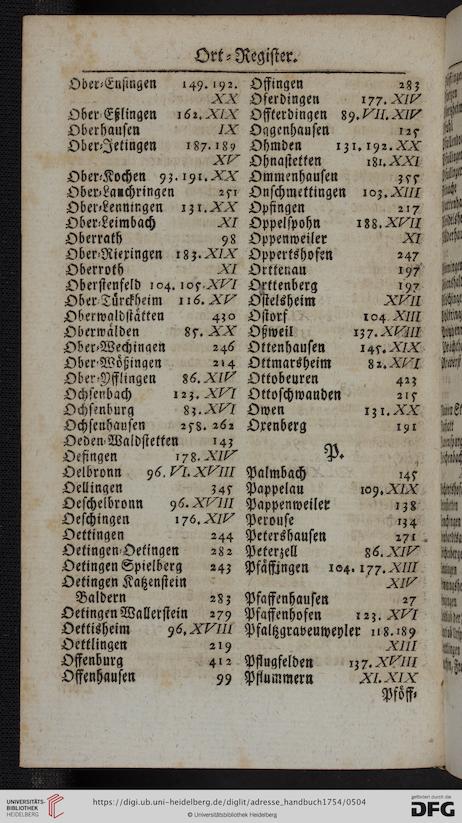 Ort-Register.
Ober-Ensingen 149. 192.
XX
Ober-Eßlingen 162. XIX
Oberhausen IX
Ober-Jetingen 187. 189
XV
Ober-Kochen 93. 191. XX
Ober-Lauchringen 251
Ober-Lenningen 131. XX
Ober-Leimbach XI
Oberrath 98
Ober-Riexingen 183. XIX
Oberroth XI
Oberstenfeld 104. 105. XVI
Ober-Türckheim 116. XV
Oberwaldstätten 430
Oberwälden 85. XX
Ober-Wechingen 246
Ober-Wößingen 214
Ober-Yfflingen 86. XIV
Ochsenbach 123. XVI
Ochsenburg 83. XVI
Ochsenhausen 258. 262
Oeden-Waldstetten 143
Oefingen 178. XIV
Oelbronn 96. VI. XVIII
Oellingen 345
Oeschelbronn 96. XVIII
Oeschingen 176. XIV
Oettingen 244
Oetingen-Oetingen 282
Oetingen Spielberg 243
Oetingen Katzenstein
Baldern 283
Oetingen Wallerstein 279
Oettisheim 96. XVIII
Oettlingen 219
Offenburg 412
Offenhausen 99
Offingen 283
Oferdingen 177. XIV
Offterdingen 89. VII. XIV
Oggenhausen 125
Ohmden 131. 192. XX
Ohnastetten 181. XXI
Ommenhausen 355
Onschmettingen 103. XIII
Opfingen 217
Oppelspohn 188. XVII
Oppenweiler XI
Oppertshofen 247
Orttenau 197
Orttenberg 197
Ostelsheim XVII
Ostorf 104. XIII
Oßweil 137. XVIII
Ottenhausen 145. XIX
Ottmarsheim 82. XVI
Ottobeuren 423
Ottoschwanden 215
Owen 131. XX
Oxenberg 191
P.
Palmbach 145
Pappelau 109. XIX
Pappenweiler 138
Perouse 134
Petershausen 271
Peterzell 86. XIV
Pfäffingen 104. 177. XIII
XIV
Pfaffenhausen 27
Pfaffenhofen 123. XVI
Pfaltzgravenweyler 118. 189
XIII
Pflugfelden 137. XVIII
Pflummern XI. XIX
Pföff-
UNIVERSITÄTS-
BIBLIOTHEK
HEIDELBERG
https://digi.ub.uni-heidelberg.de/diglit/adresse_handbuch1754/0504
© Universitätsbibliothek Heidelberg
gefördert durch die
DFG